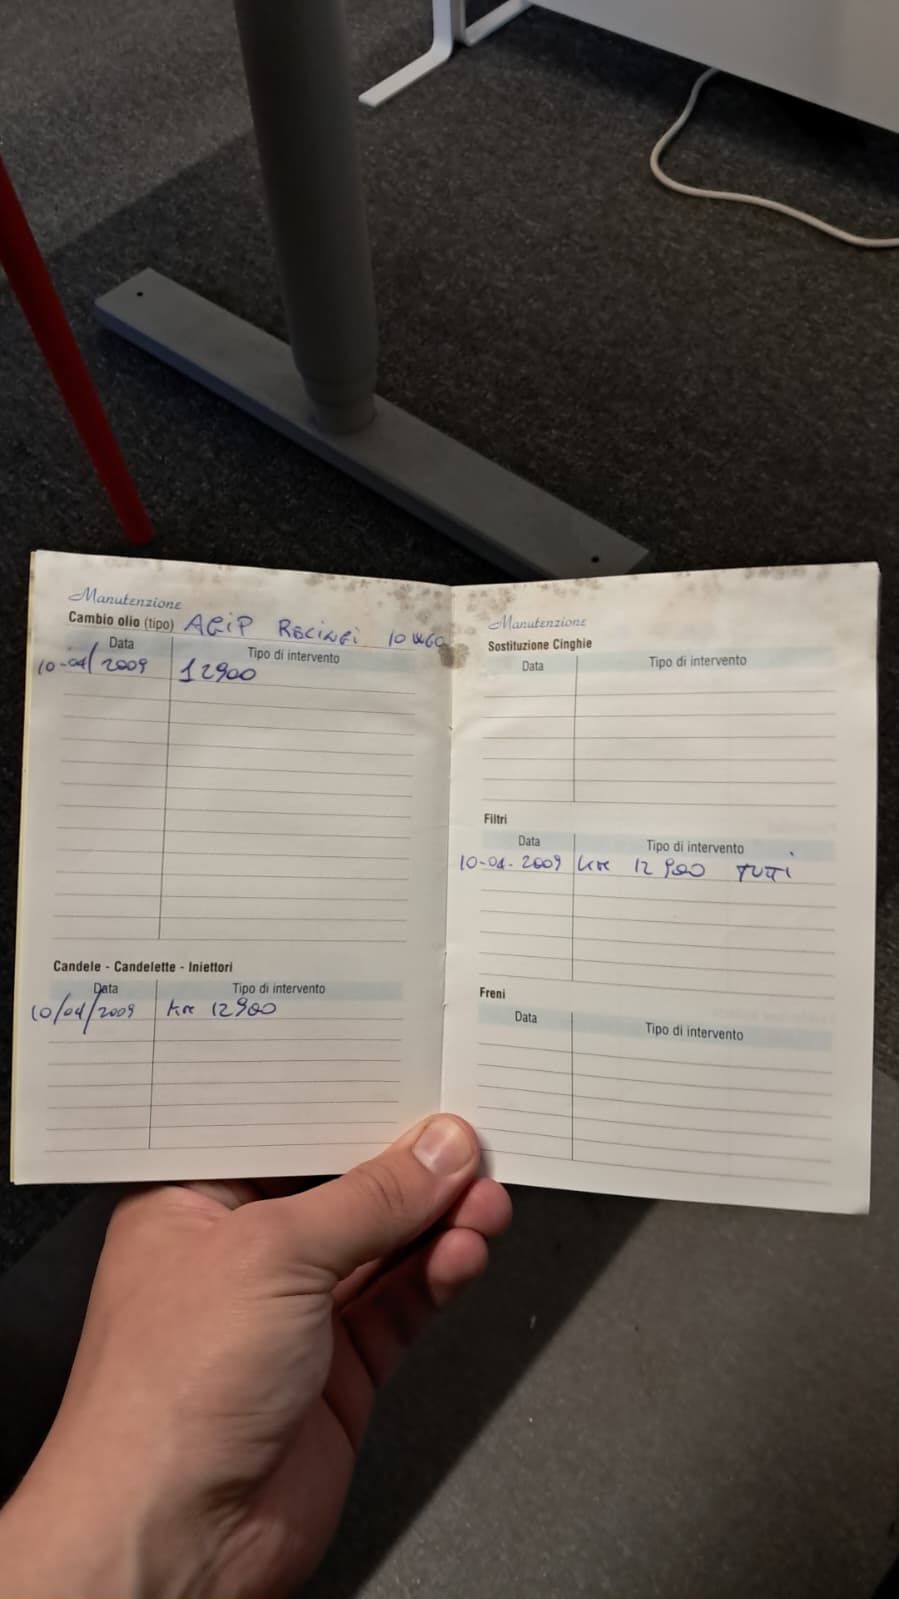 Manutenzione
Cambio olio (tipo) AGIP RACING 10W60
Data Tipo di intervento
10-04/2009 12900
Candele - Candelette - Iniettori
Data Tipo di intervento
10/04/2009 km 12900
Manutenzione
Sostituzione Cinghie
Data Tipo di intervento
Filtri
Data Tipo di intervento
10-04-2009 km 12900 TUTTI
Freni
Data Tipo di intervento